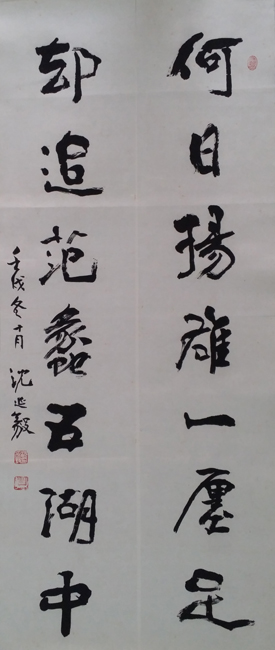 何日揚雄一廛足
却追范蠡五湖中
壬戌冬十月 沈延毅